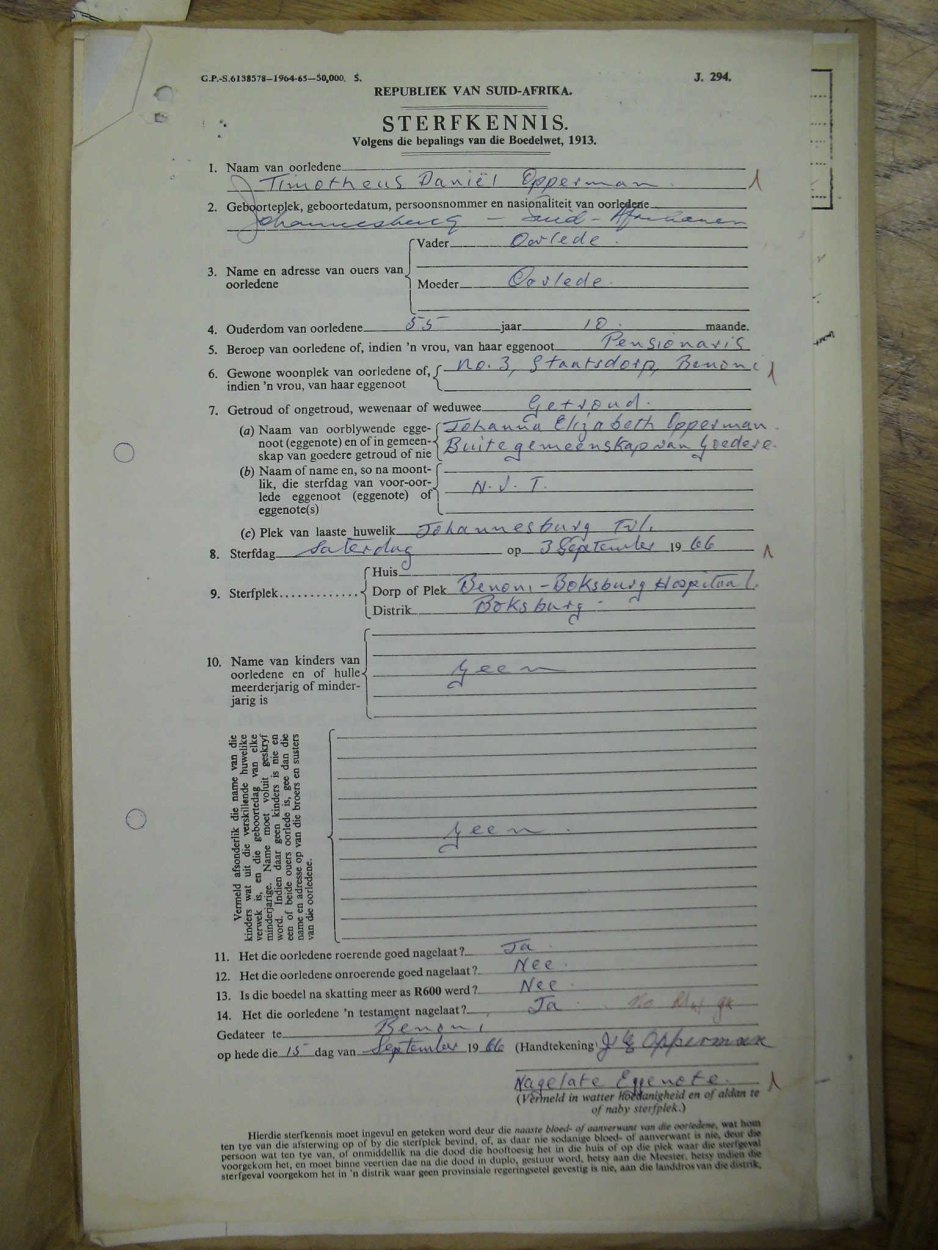 G.P.-S.6138578—1964-65—50,000. S. J. 294.
REPUBLIEK VAN SUID-AFRIKA.
STERFKENNIS.
Volgens die bepalings van die Boedelwet, 1913.
1. Naam van oorledene
Timotheus Daniël Opperman
2. Geboorteplek, geboortedatum, persoonsnommer en nasionaliteit van oorledene
Johannesburg — Suid-Afrikaner
3. Name en adresse van ouers van oorledene
Vader Oorlede.
Moeder Oorlede.
4. Ouderdom van oorledene 55 jaar 10. maande.
5. Beroep van oorledene of, indien 'n vrou, van haar eggenoot Pensionaris
6. Gewone woonplek van oorledene of, No. 3, Staatsdorp, Benoni
indien 'n vrou, van haar eggenoot
7. Getroud of ongetroud, wewenaar of weduwee Getroud.
(a) Naam van oorblywende egge- Johanna Elizabeth Opperman.
noot (eggenote) en of in gemeen- Buitegemeenskap van Goedere.
skap van goedere getroud of nie
(b) Naam of name en, so na moont-
lik, die sterfdag van voor-oor- N.V.T.
lede eggenoot (eggenote) of
eggenote(s)
(c) Plek van laaste huwelik Johannesburg Tvl.
8. Sterfdag Saterdag op 3 September 1966
9. Sterfplek............
Huis
Dorp of Plek Benoni-Boksburg Hospitaal.
Distrik Boksburg -
10. Name van kinders van
oorledene en of hulle Geen
meerderjarig of minder-
jarig is
Vermeld afsonderlik die name van die
kinders wat uit die verskillende huwelike
verwek is, en die geboortedag van elke
minderjarige. Name moet voluit geskryf
word. Indien daar geen kinders is nie en
een of beide ouers oorlede is, gee dan die
name en adresse op van die broers en susters
van die oorledene.
Geen.
11. Het die oorledene roerende goed nagelaat? Ja
12. Het die oorledene onroerende goed nagelaat? Nee.
13. Is die boedel na skatting meer as R600 werd? Nee
14. Het die oorledene 'n testament nagelaat? Ja
Gedateer te Benoni
op hede die 15 dag van September 1966 (Handtekening) J E Opperman
Nagelate Eggenote.
(Vermeld in watter hoedanigheid en of aldan te
of naby sterfplek.)
Hierdie sterfkennis moet ingevul en geteken word deur die naaste bloed- of aanverwant van die oorledene, wat hom
ten tye van die afsterwing op of by die sterfplek bevind, of, as daar nie sodanige bloed- of aanverwant is nie, deur die
persoon wat ten tye van, of onmiddellik na die dood die hooftoesig het in die huis of op die plek waar die sterfgeval
voorgekom het, en moet binne veertien dae na die dood in duplo, gestuur word, hetsy aan die Meester, hetsy indien die
sterfgeval voorgekom het in 'n distrik waar geen provinsiale regeringsetel gevestig is nie, aan die landdros van die distrik,